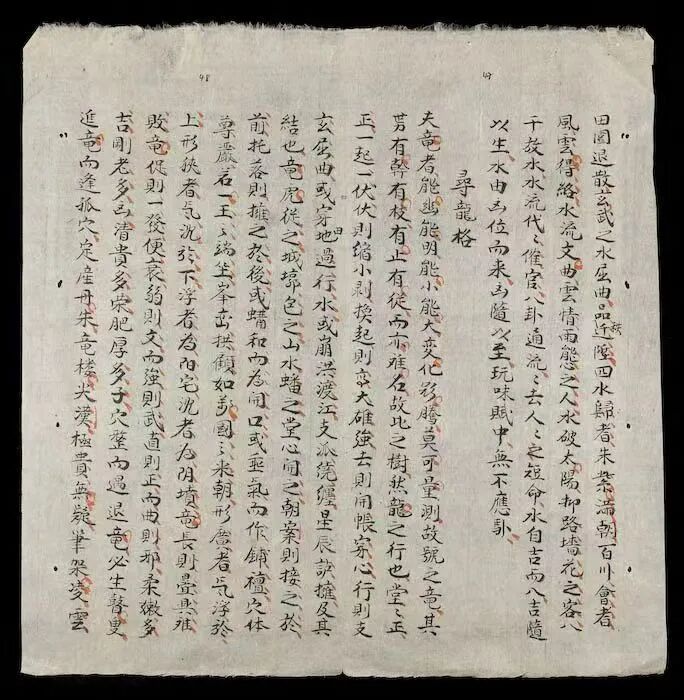 田園退散玄武之水屈曲品近陰四水歸者朱紫滿朝百川會者
風雲得路水流文曲雲情雨態之人水破太陽柳路墻花之客八
干放水水流代〻催官八卦通流〻去人〻之短命水自吉而入吉隨
以生水由凶位而来凶隨以至玩味賦中無不應卦
尋龍格
夫竜者能幽能明能小能大変化影騰莫可量測故號之竜其
有幹有枝有止有從而亦难名故比之樹然龍之行也堂〻正
正一起一伏伏則缩小剥換起則高大雄強去則開帳穿心行則支
玄屈曲或穿田地過行水或崩洪渡江支派繞纏星辰護擁及其
結也竜虎從之城郭包之山水蟠之堂心開之朝案則接之於
前托落則擁之於後或蜡和而為開口或乘氣而作鋪氊穴体
尊嚴若一主〻端坐峯巒拱顧如萬國〻来朝形露者気浮於
上形狭者気沉於下浮者為陽宅沉者為阴墳竜長則疊具难
敗竜促則一發便衰弱則文而強則武直則正而曲則邪柔嫩多
吉剛老多凶清貴多荣肥厚多子穴整而遇退竜必生瞽叟
進竜而逢孤穴定産丹朱竜楼尖漢極貴無疑筆架凌雲
48
49